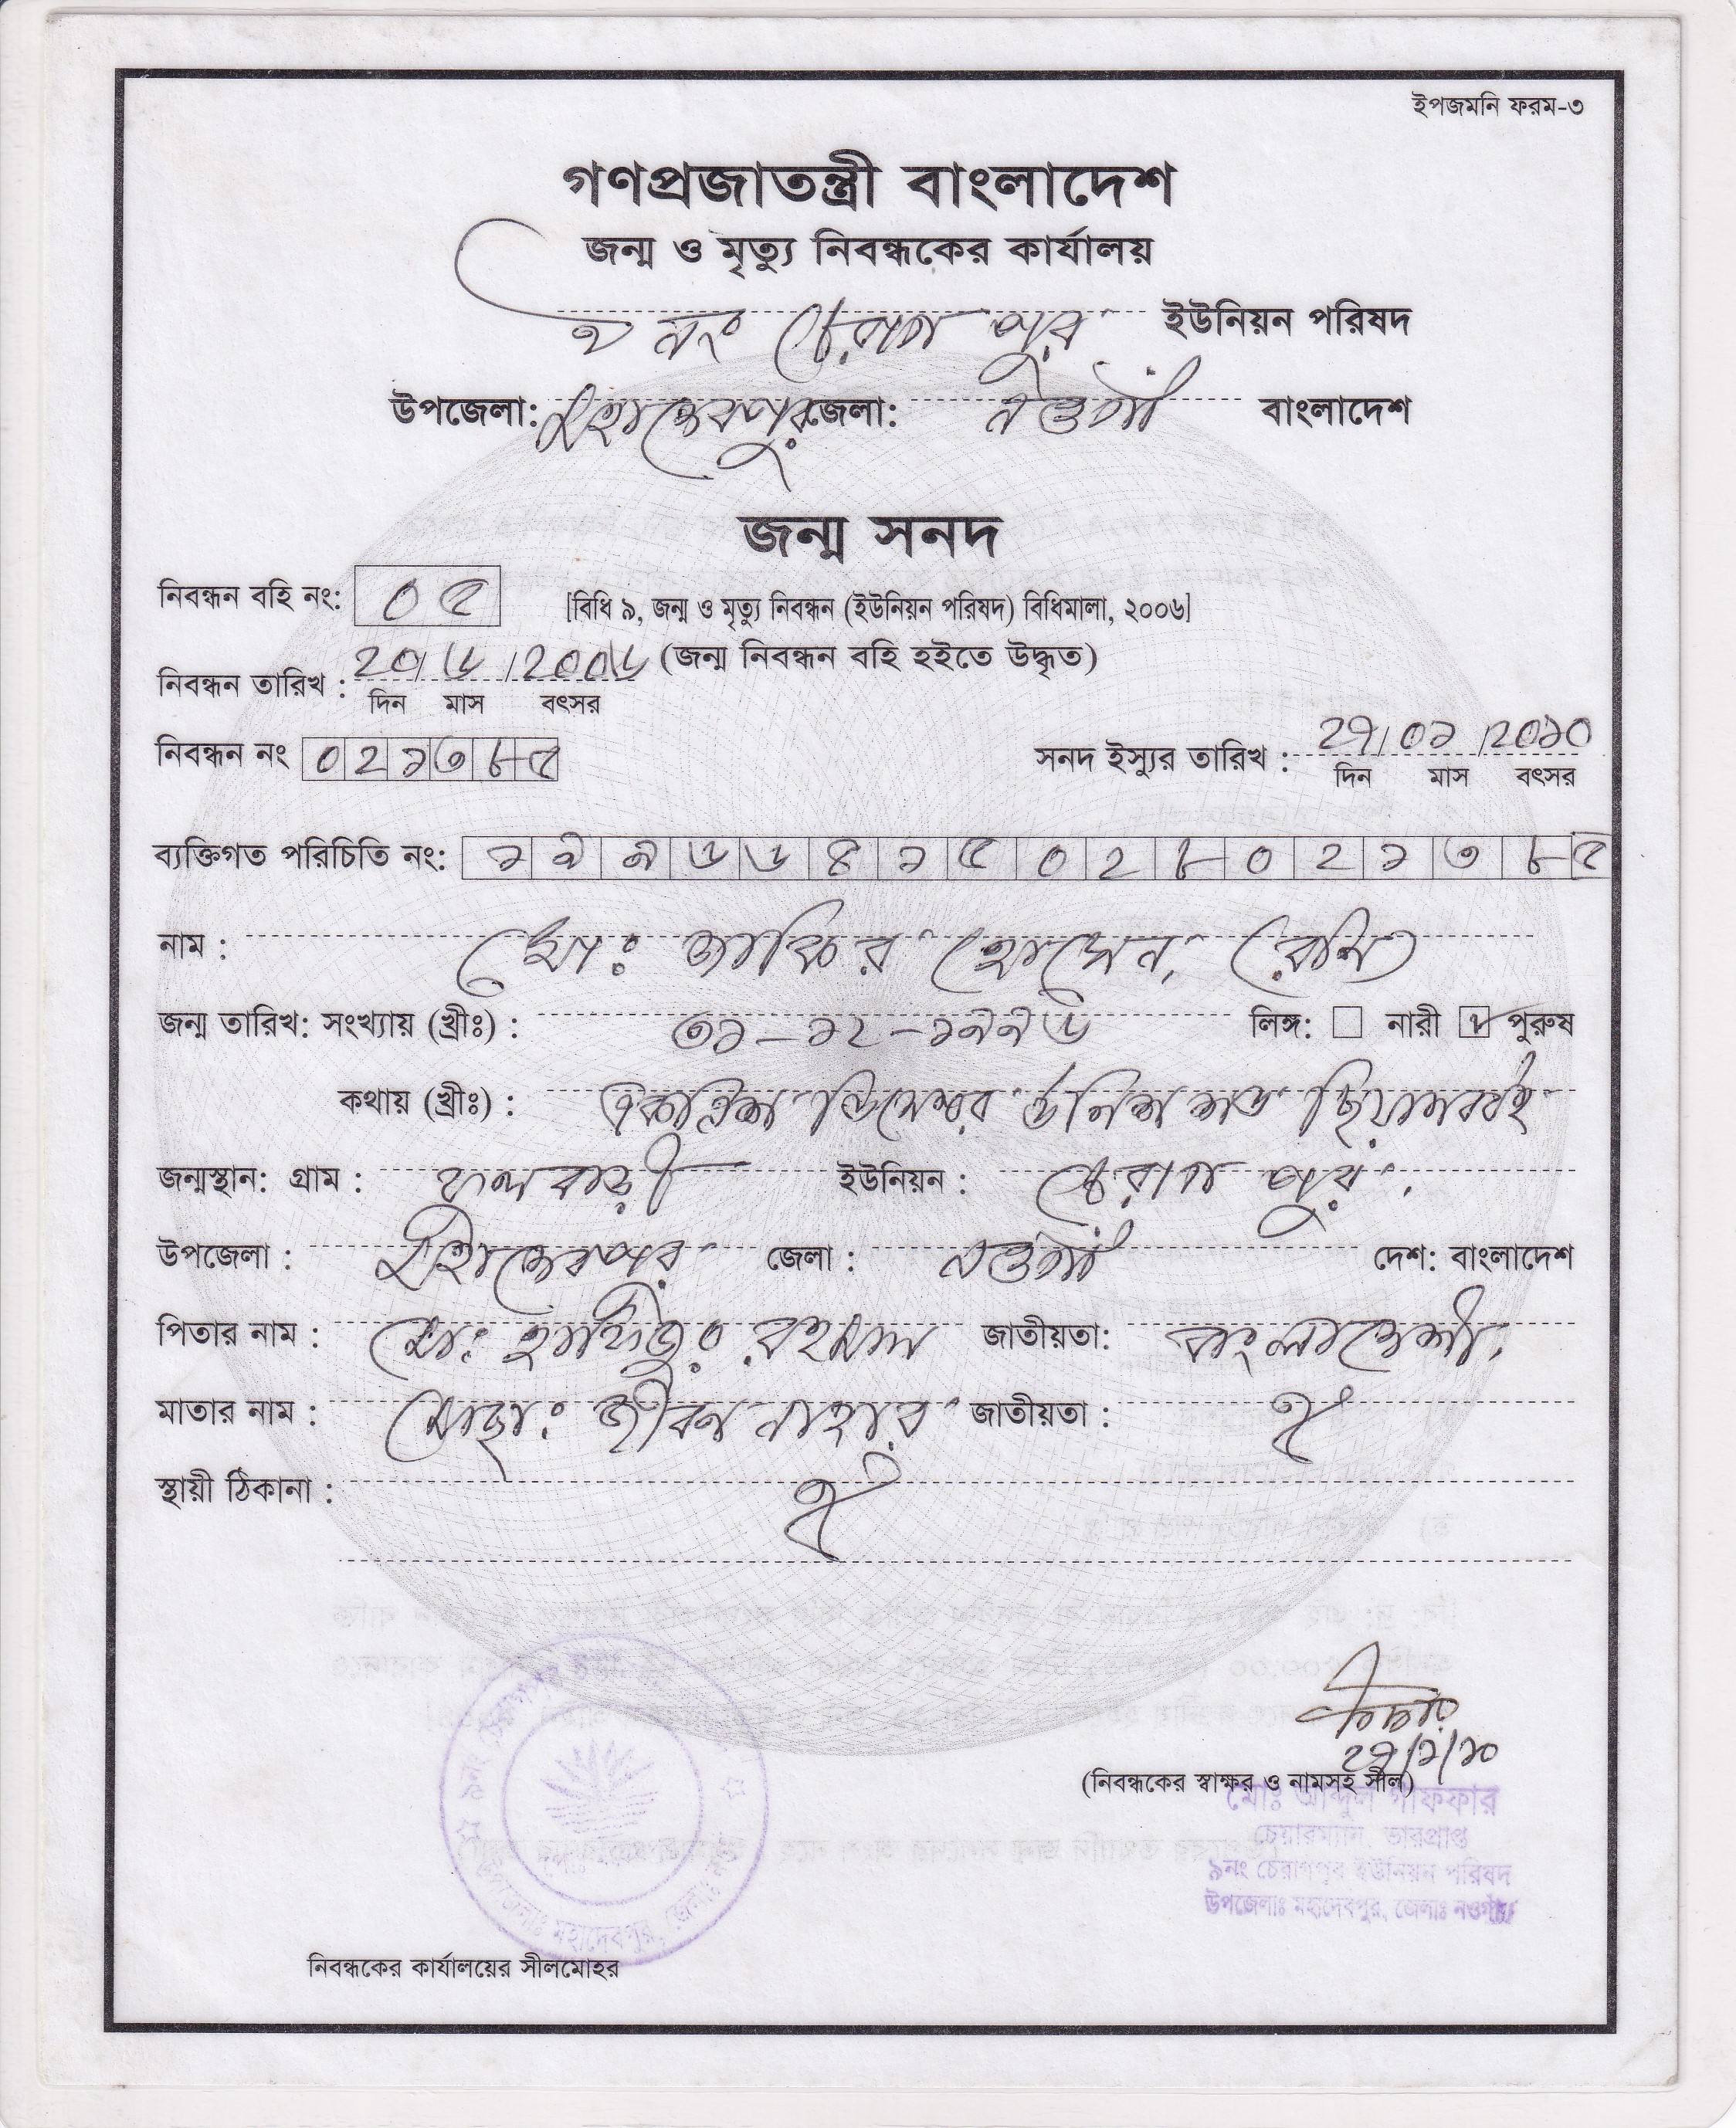 ইপজমনি ফরম-৩
গণপ্রজাতন্ত্রী বাংলাদেশ
জন্ম ও মৃত্যু নিবন্ধকের কার্যালয়
৯ নং চেরাগ পুর ইউনিয়ন পরিষদ
উপজেলা: মহাদেবপুর জেলা: নওগাঁ বাংলাদেশ
জন্ম সনদ
নিবন্ধন বহি নং: ০৫ [বিধি ৯, জন্ম ও মৃত্যু নিবন্ধন (ইউনিয়ন পরিষদ) বিধিমালা, ২০০৬]
নিবন্ধন তারিখ : ২০/৬/২০০৬ (জন্ম নিবন্ধন বহি হইতে উদ্ধৃত)
দিন মাস বৎসর
নিবন্ধন নং ০২১৩৮৫ সনদ ইস্যুর তারিখ : ২৭/০১/২০১০
দিন মাস বৎসর
ব্যক্তিগত পরিচিতি নং: ১৯৯৬৬৪১৫০২৮০২১৩৮৫
নাম : মোঃ জাকির হোসেন, রেনি
জন্ম তারিখ: সংখ্যায় (খ্রীঃ) : ৩১-১২-১৯৯৬ লিঙ্গ: নারী পুরুষ
কথায় (খ্রীঃ) : একত্রিশ ডিসেম্বর উনিশ শত ছিয়ানব্বই
জন্মস্থান: গ্রাম : ইউনিয়ন : চেরাগ পুর
উপজেলা : মহাদেবপুর জেলা : নওগাঁ দেশ: বাংলাদেশ
পিতার নাম : মোঃ হাফিজুর রহমান জাতীয়তা: বাংলাদেশী
মাতার নাম : মোছাঃ জীবন নাহার জাতীয়তা : ঐ
স্থায়ী ঠিকানা : ঐ
২৭/১/১০
(নিবন্ধকের স্বাক্ষর ও নামসহ সীল)
মোঃ আব্দুল গাফফার
চেয়ারম্যান, ভারপ্রাপ্ত
৯নং চেরাগপুর ইউনিয়ন পরিষদ
উপজেলাঃ মহাদেবপুর, জেলাঃ নওগাঁ
৯নং চেরাগপুর
উপজেলাঃ মহাদেবপুর, জেলাঃ
নিবন্ধকের কার্যালয়ের সীলমোহর